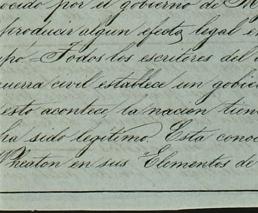 ocido por el gobierno de M
producir algun efecto legal en
pró. Todos los escritores del
uerra civil establece un gobie
esto acontece, la nacion tien
ha sido legítimo. Esta conoc
Wheaton en sus Elementos de